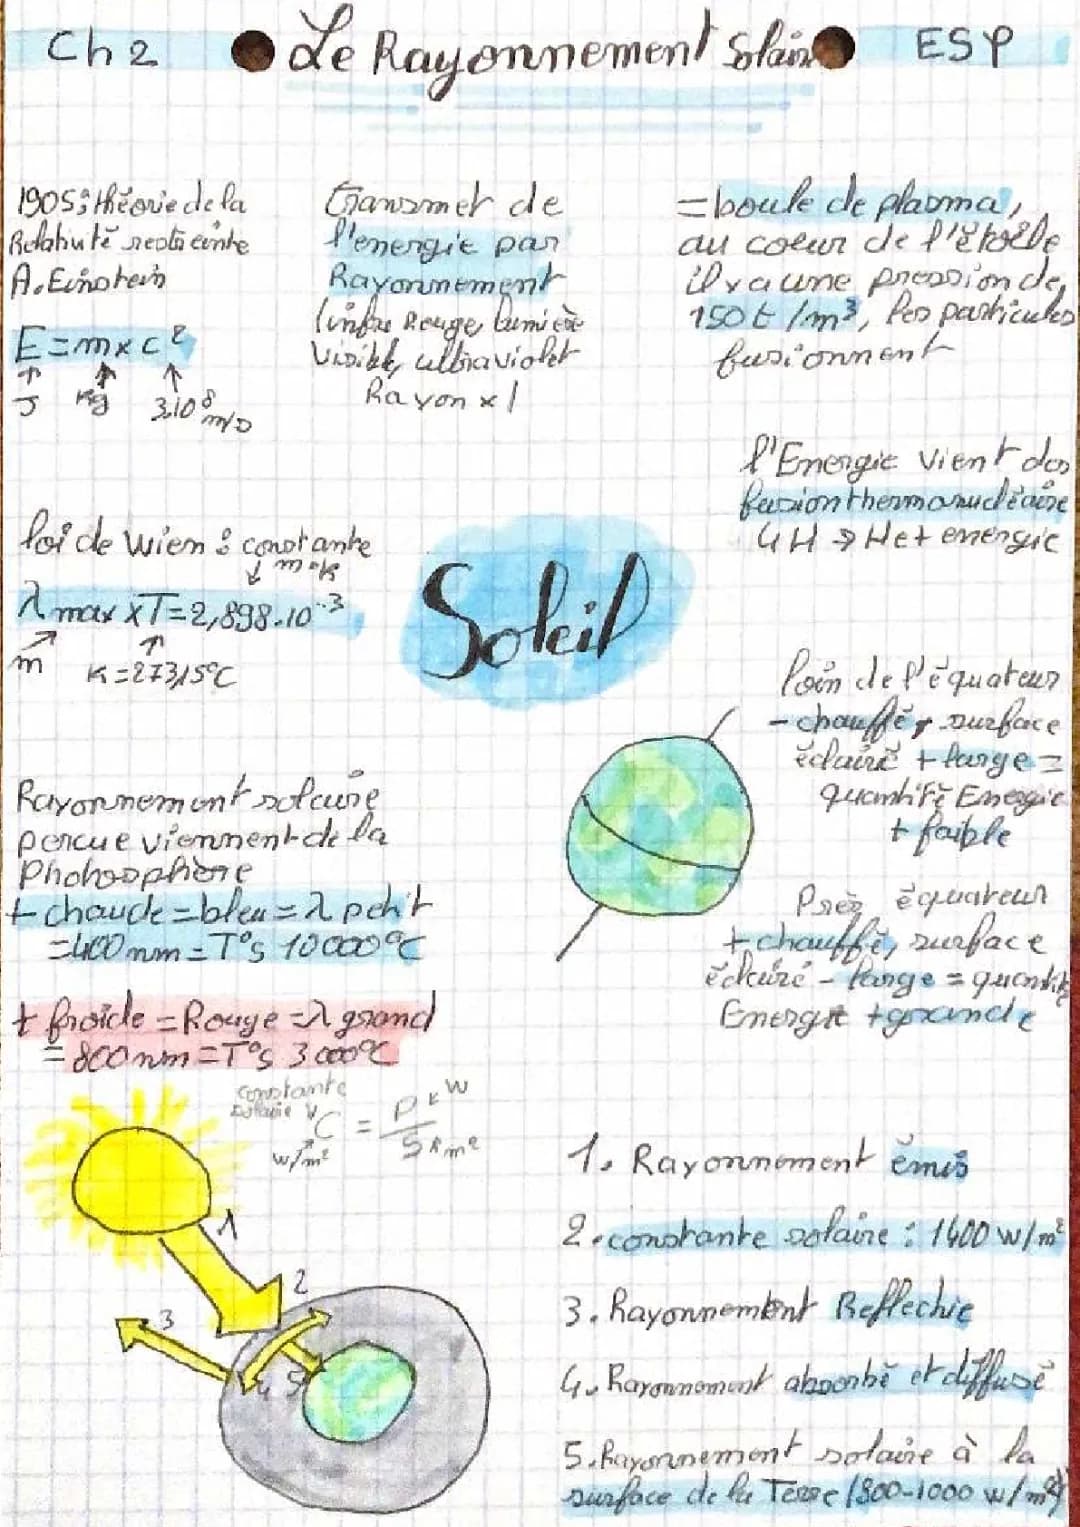 Ch 2
Le Rayonnement Solaire
ESP
1905: théorie de la
Relativité restreinte
A. Einstein
E = m x c²
J
Kg
3.10⁸ m/s
transmet de
l'energie par
Rayonnement
(infra Rouge, lumière
Visible, ultraviolet
Rayon x)
= boule de plasma,
au coeur de l'étoile
il y a une pression de
150 t /m³, les particules
fusionnent
l'Energie vient des
fusion thermonucléaire
4H → He + energie
loi de Wien : constante
m.k
λ max x T = 2,898.10⁻³
m
K = 273,15°C
Soleil
loin de l'équateur
- chauffé, surface
éclairé + large =
quantité Energie
+ faible
Près équateur
+ chauffé, surface
éclairé - large = quantité
Energie + grande
Rayonnement solaire
percue viennent de la
Photosphère
+ chaude = bleu = λ petit
= 400 nm = T°s 10 000°C
+ froide = Rouge = λ grand
= 800 nm = T°s 3 000°C
constante
solaire
C = P / S
W
W/m²
m²
1
2
3
4
5
1. Rayonnement émis
2. constante solaire : 1400 w/m²
3. Rayonnement Reflechie
4. Rayonnement absorbé et diffusé
5. Rayonnement solaire à la
surface de la Terre (800-1000 w/m²)